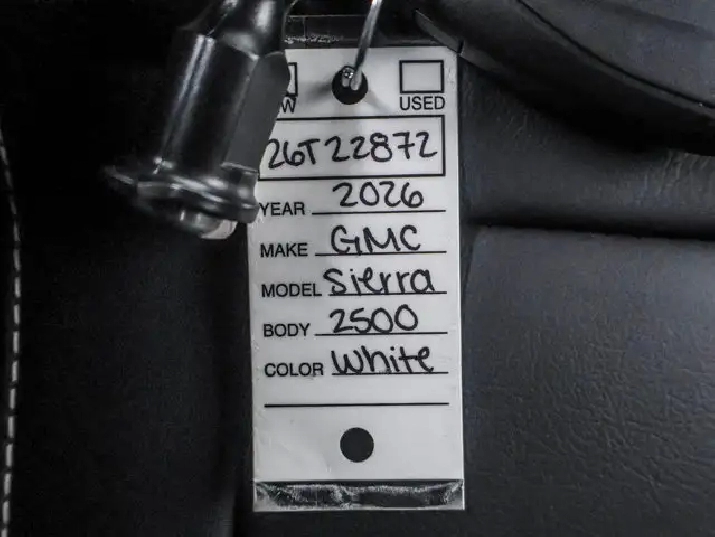 W USED
26T22872
YEAR 2026
MAKE GMC
MODEL Sierra
BODY 2500
COLOR White